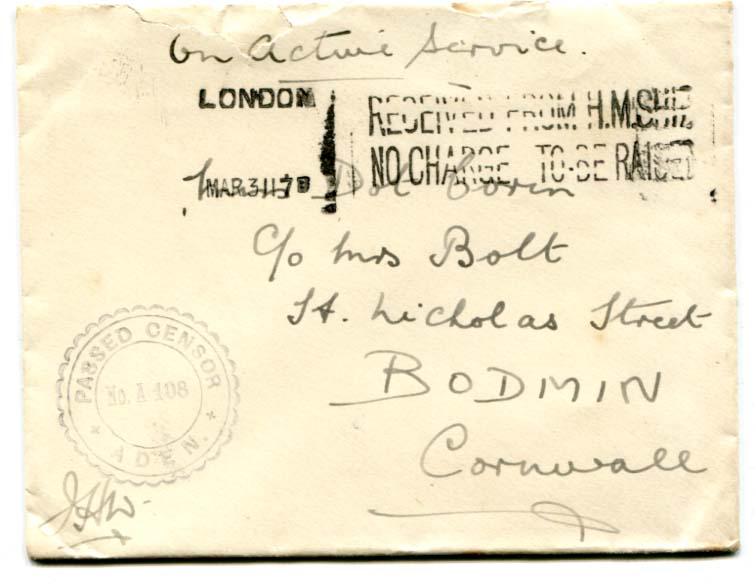 On Active Service.
LONDON
RECEIVED FROM H.M.SHIP
NO CHARGE TO BE RAISED
MAR 31 17
Dol
C/o Mrs Bolt
St. Nicholas Street
BODMIN
Cornwall
PASSED CENSOR
No. A 108
ADEN.